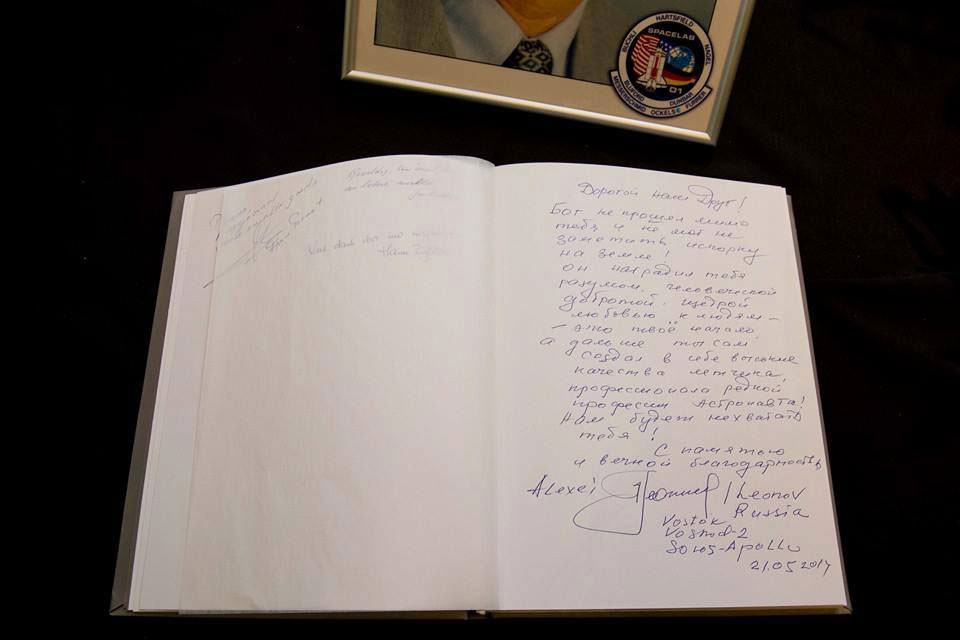 BUCHLI HARTSFIELD NAGEL
SPACELAB
D1
BLUFORD DUNBAR
MESSERSCHMID OCKELS FURRER
Дорогой наш Друг!
Бог не прошел мимо
тебя и не мог не
заметить искорку
на Земле!
он наградил тебя
разумом, человеческой
добротой, щедрой
любовью к людям –
– это твоё начало
а дальше ты сам
создал в себе высокие
качества летчика,
профессионала редкой
профессии Астронавта!
Нам будет нехватать
тебя!
С памятью
и вечной благодарностью
Alexei Леонов / Leonov
Russia
Vostok
Voshod-2
Soros-Apollo
21.05.2014